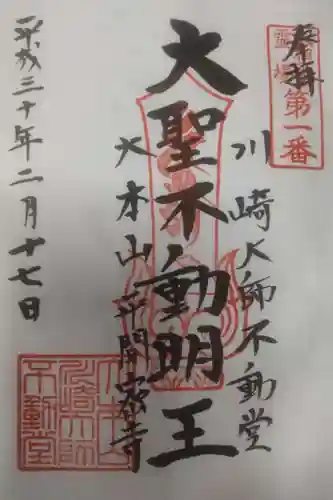 奉拝
霊場
第一番
川崎大師不動堂
大聖不動明王
大本山平間寺
平成三十年二月十七日
不動堂